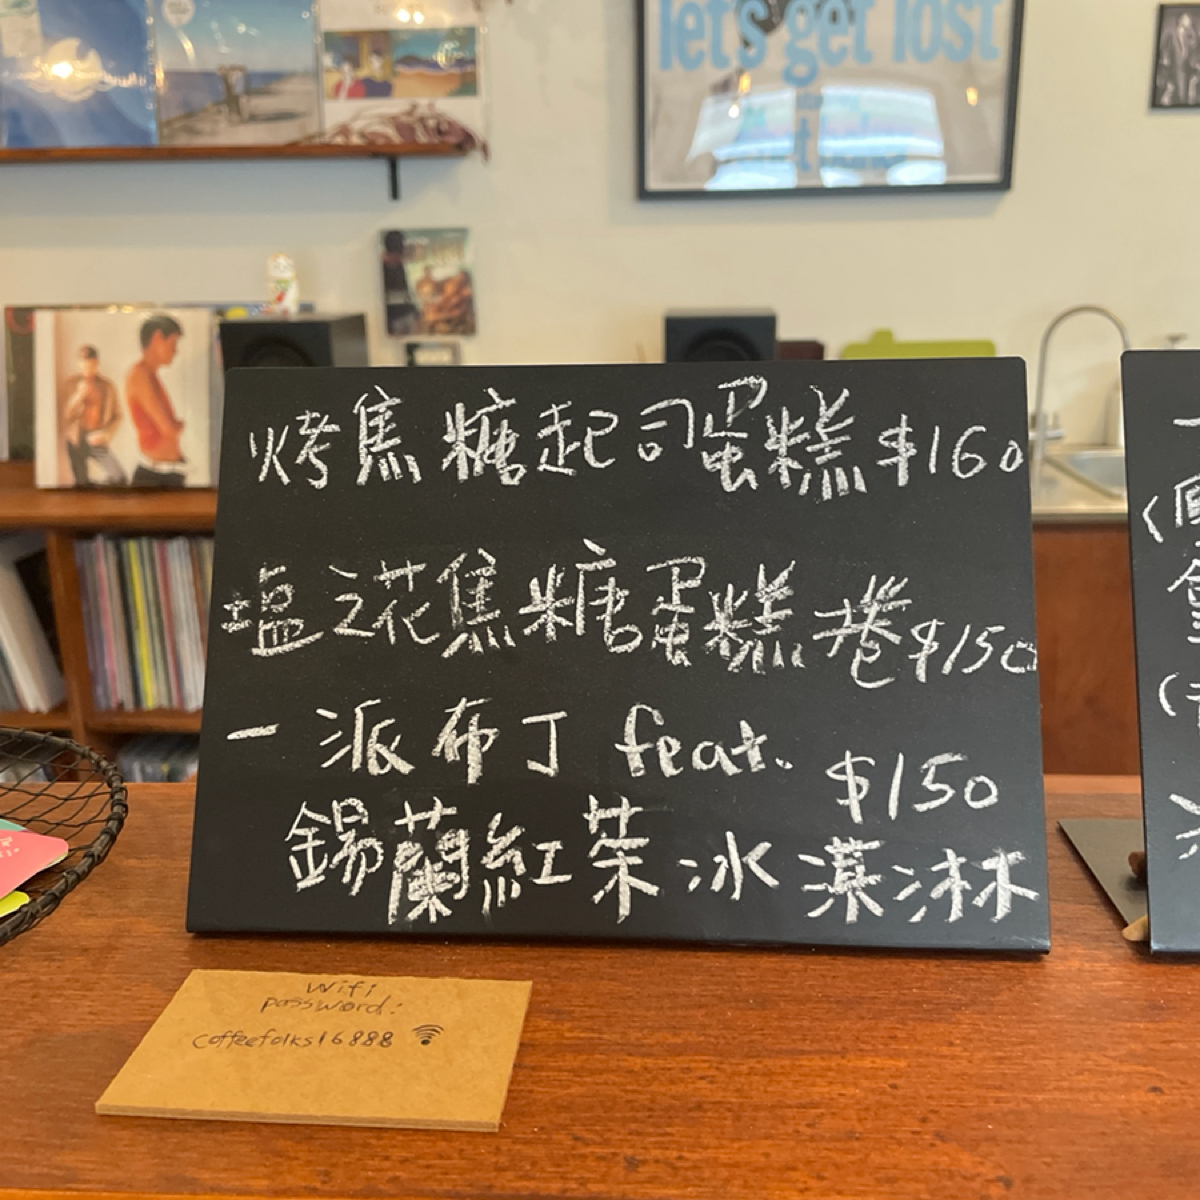 let's get lost
烤焦糖起司蛋糕 $160
塩之花焦糖蛋糕巻 $150
一派布丁 feat.
$150
錫蘭紅茶冰淇淋
Wifi
password:
coffeefolks16888